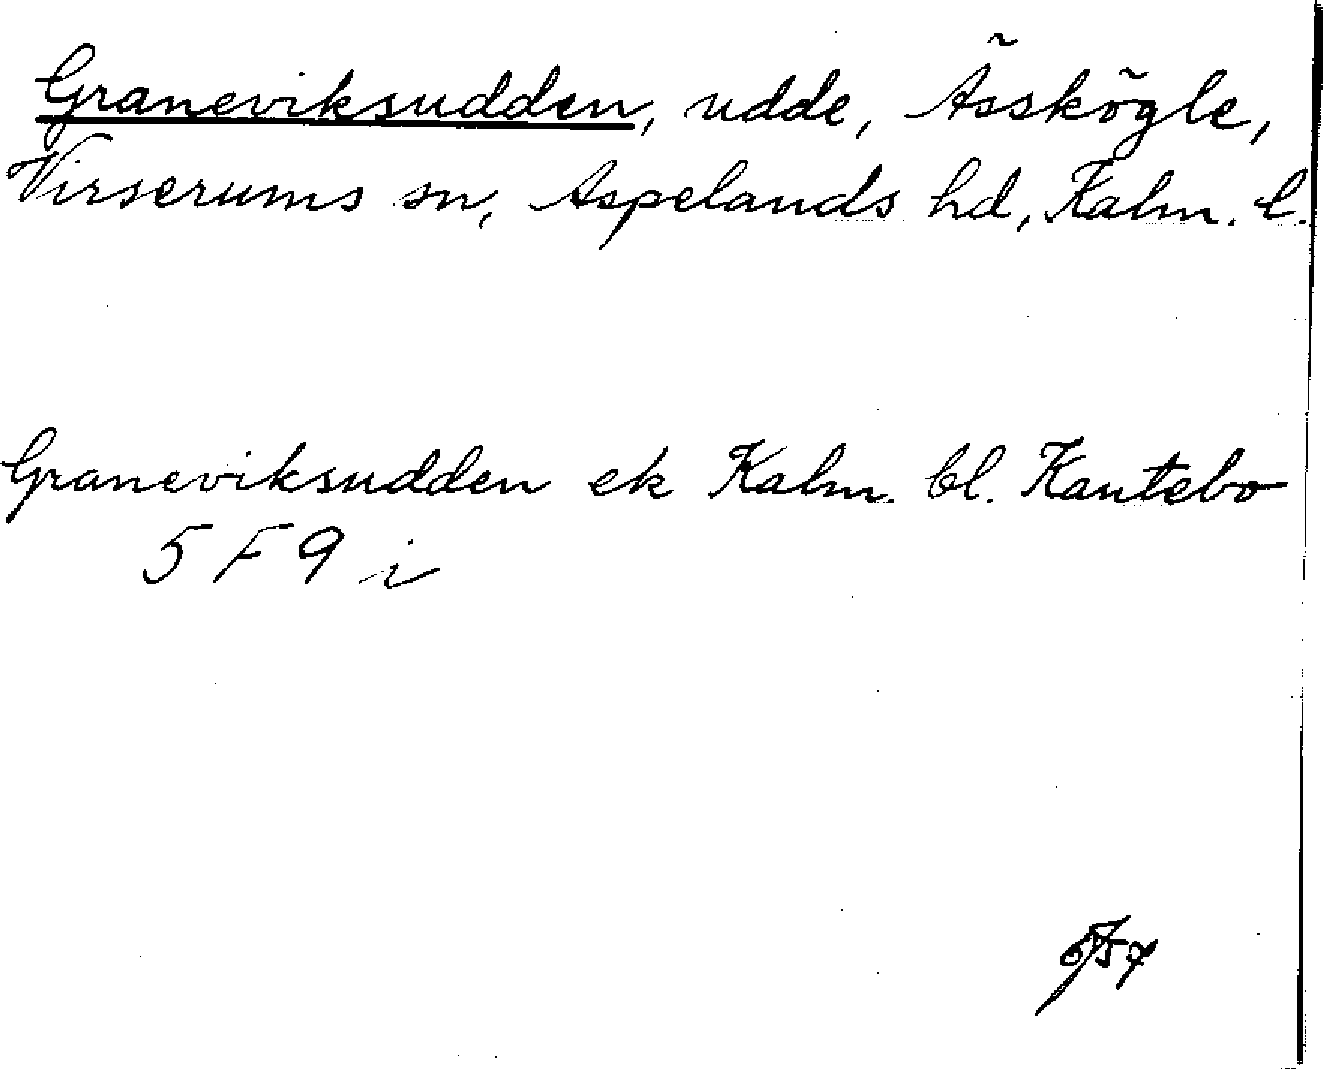 Graneviksudden, udde, Ässkögle,
Virserums sn, Aspelands hd, Kalm. l.
Graneviksudden ek Kalm. bl. Kantebo
5 F 9 i